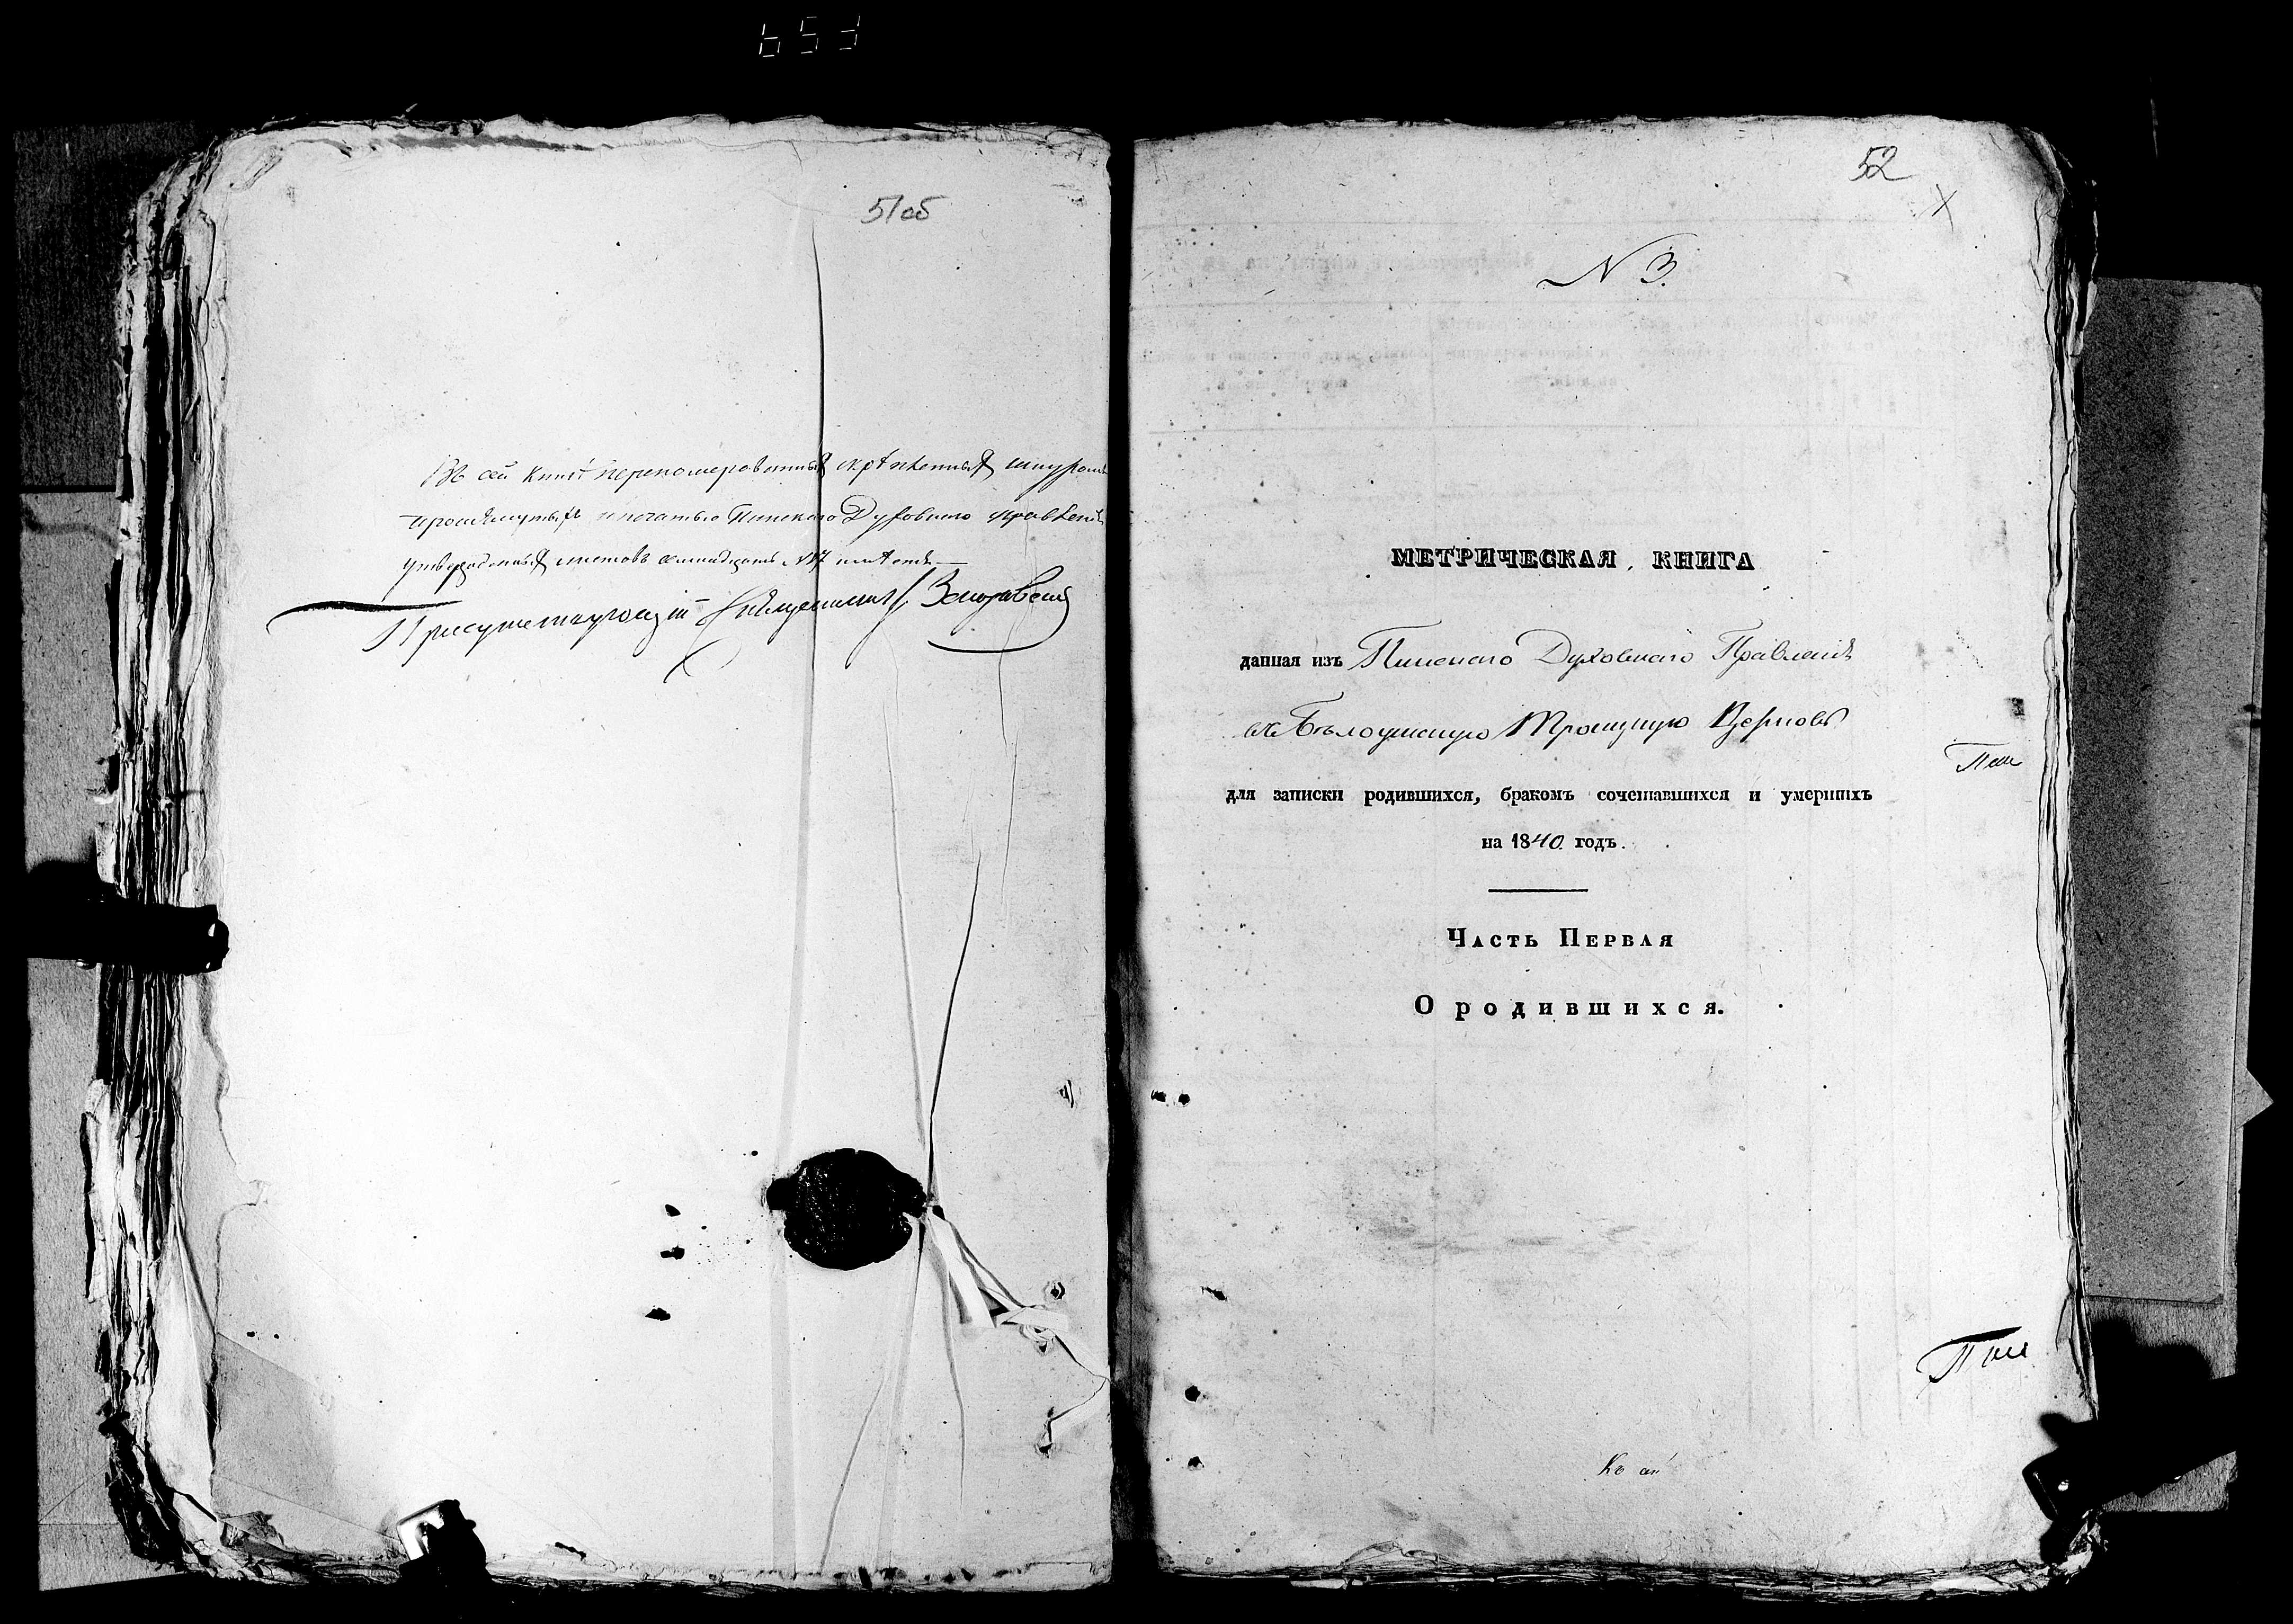 51об
Въ сей книгѣ перенумерованныхъ скрѣпленныхъ шнуромъ
прошнурыхъ и печатью Пинского Духовного Правленія
утвержденныхъ листовъ семнадцать №17 листовъ
Присутствующій Священникъ
52
N 3.
МЕТРИЧЕСКАЯ КНИГА
данная изъ Пинскаго Духовнаго Правленія
въ Бѣлоушскую Троицкую Церковь
для записки родившихся, бракомъ сочетавшихся и умершихъ
на 1840 годъ.
Часть Первая
О родившихся.